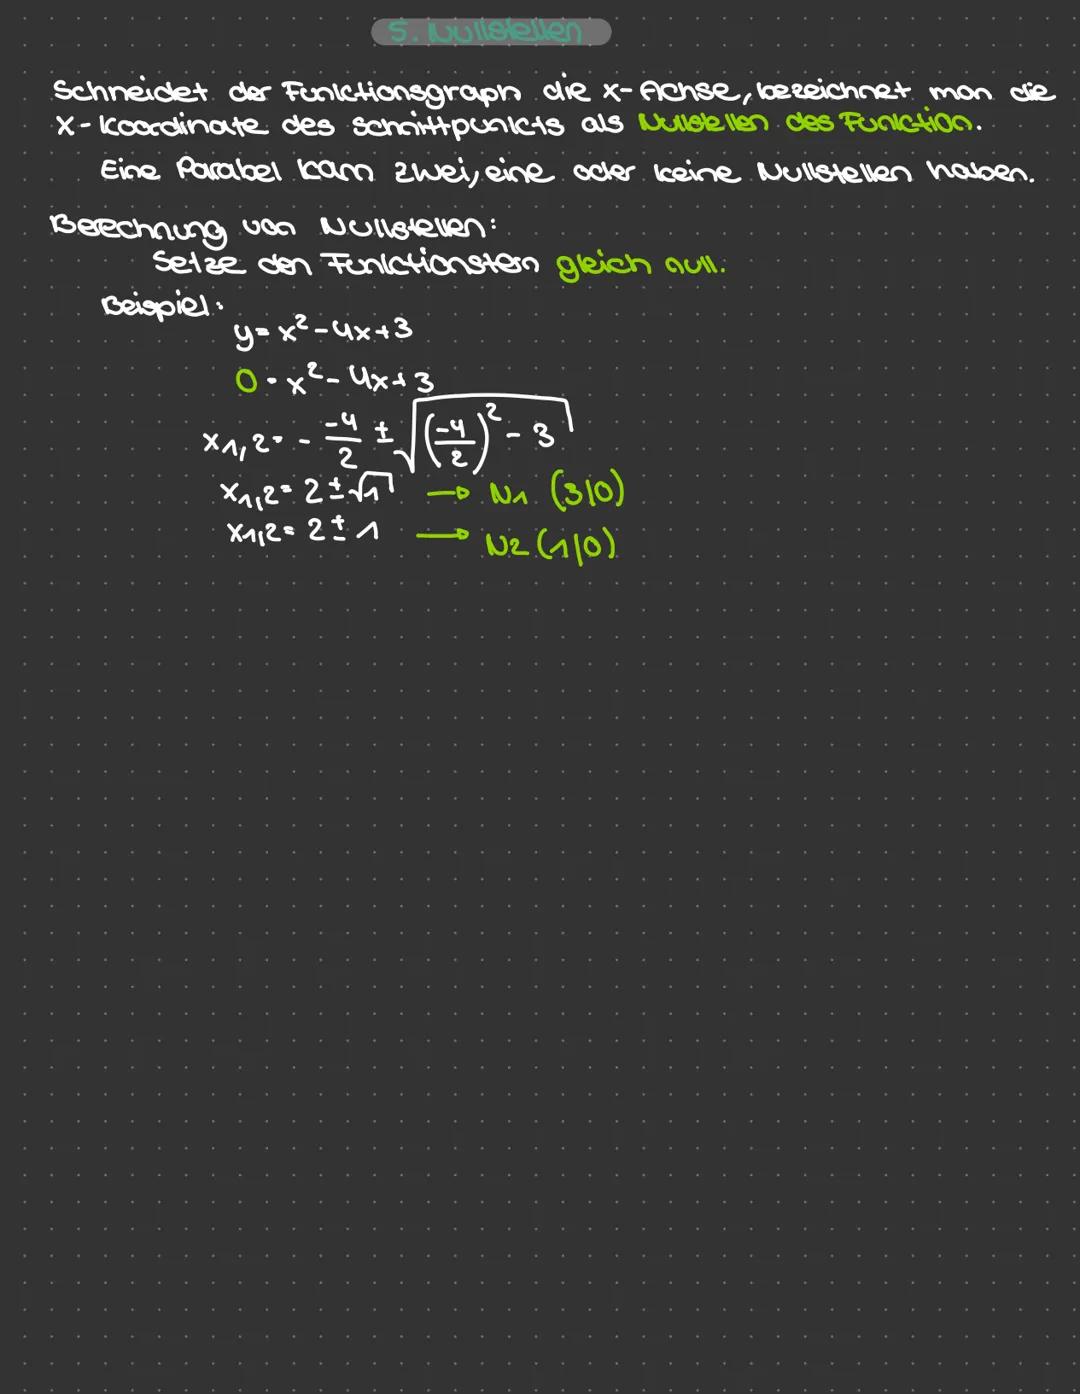 5. Nullstellen
Schneidet der Funktionsgraph die x-Achse, bezeichnet man die
x-Koordinate des Schnittpunkts als Nullstellen des Funktion.
Eine Parabel kann zwei, eine oder keine Nullstellen haben.
Berechnung von Nullstellen:
Setze den Funktionsterm gleich null.
Beispiel:
y = x² - 4x + 3
0 = x² - 4x + 3
x1,2 = - -4/2 ± √((-4/2)² - 3)
x1,2 = 2 ± √1 → N1 (3|0)
x1,2 = 2 ± 1 → N2 (1|0)